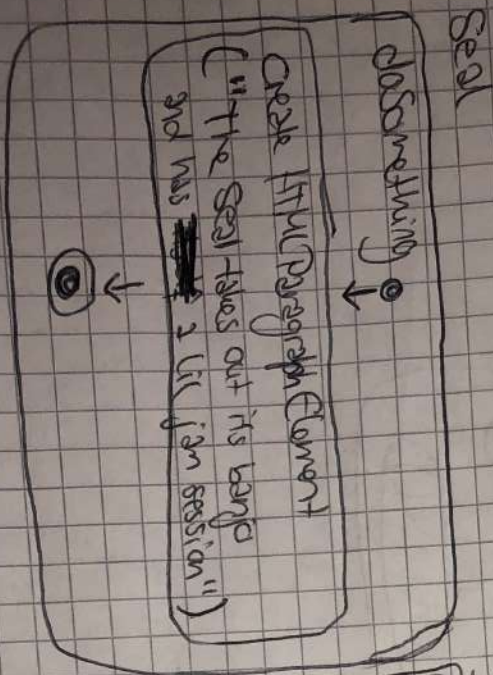 Seal
doSomething
create HTMLParagraphElement
("The Seal takes out its banjo
and has a lil jam session")